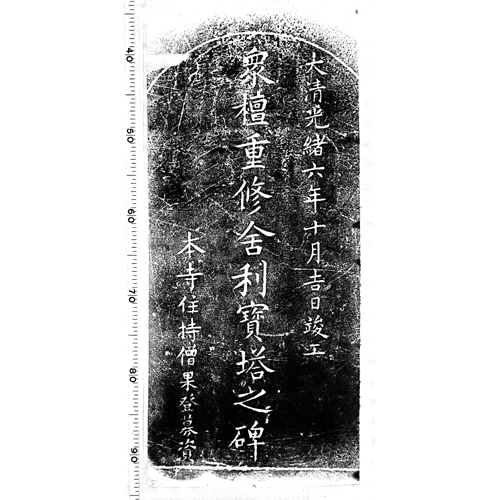 大清光緒六年十月吉日竣工
眾檀重修舍利寶塔之碑
本寺住持僧果登募資
40
50
60
70
80
90